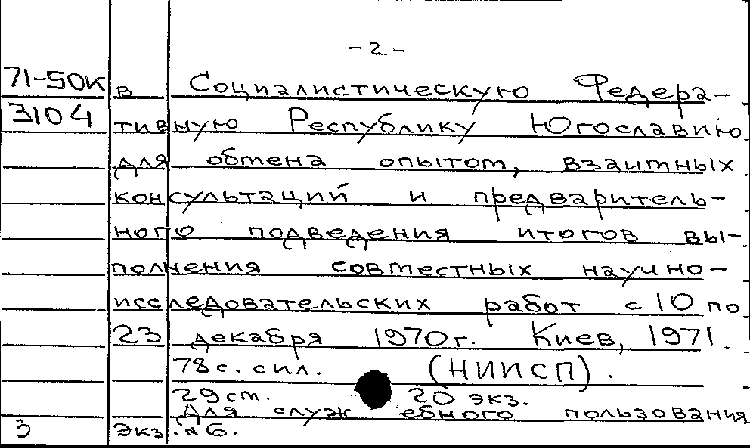 -2-
71-50К в Социалистическую Федера-
3104 тивную Республику Югославию
для обмена опытом, взаимных
консультаций и предваритель-
ного подведения итогов вы-
полнения совместных научно-
исследовательских работ с 10 по
23 декабря 1970г. Киев, 1971.
78 с. с ил. (НИИСП).
29 см. 20 экз.
Для служебного пользования
3 экз. №6.